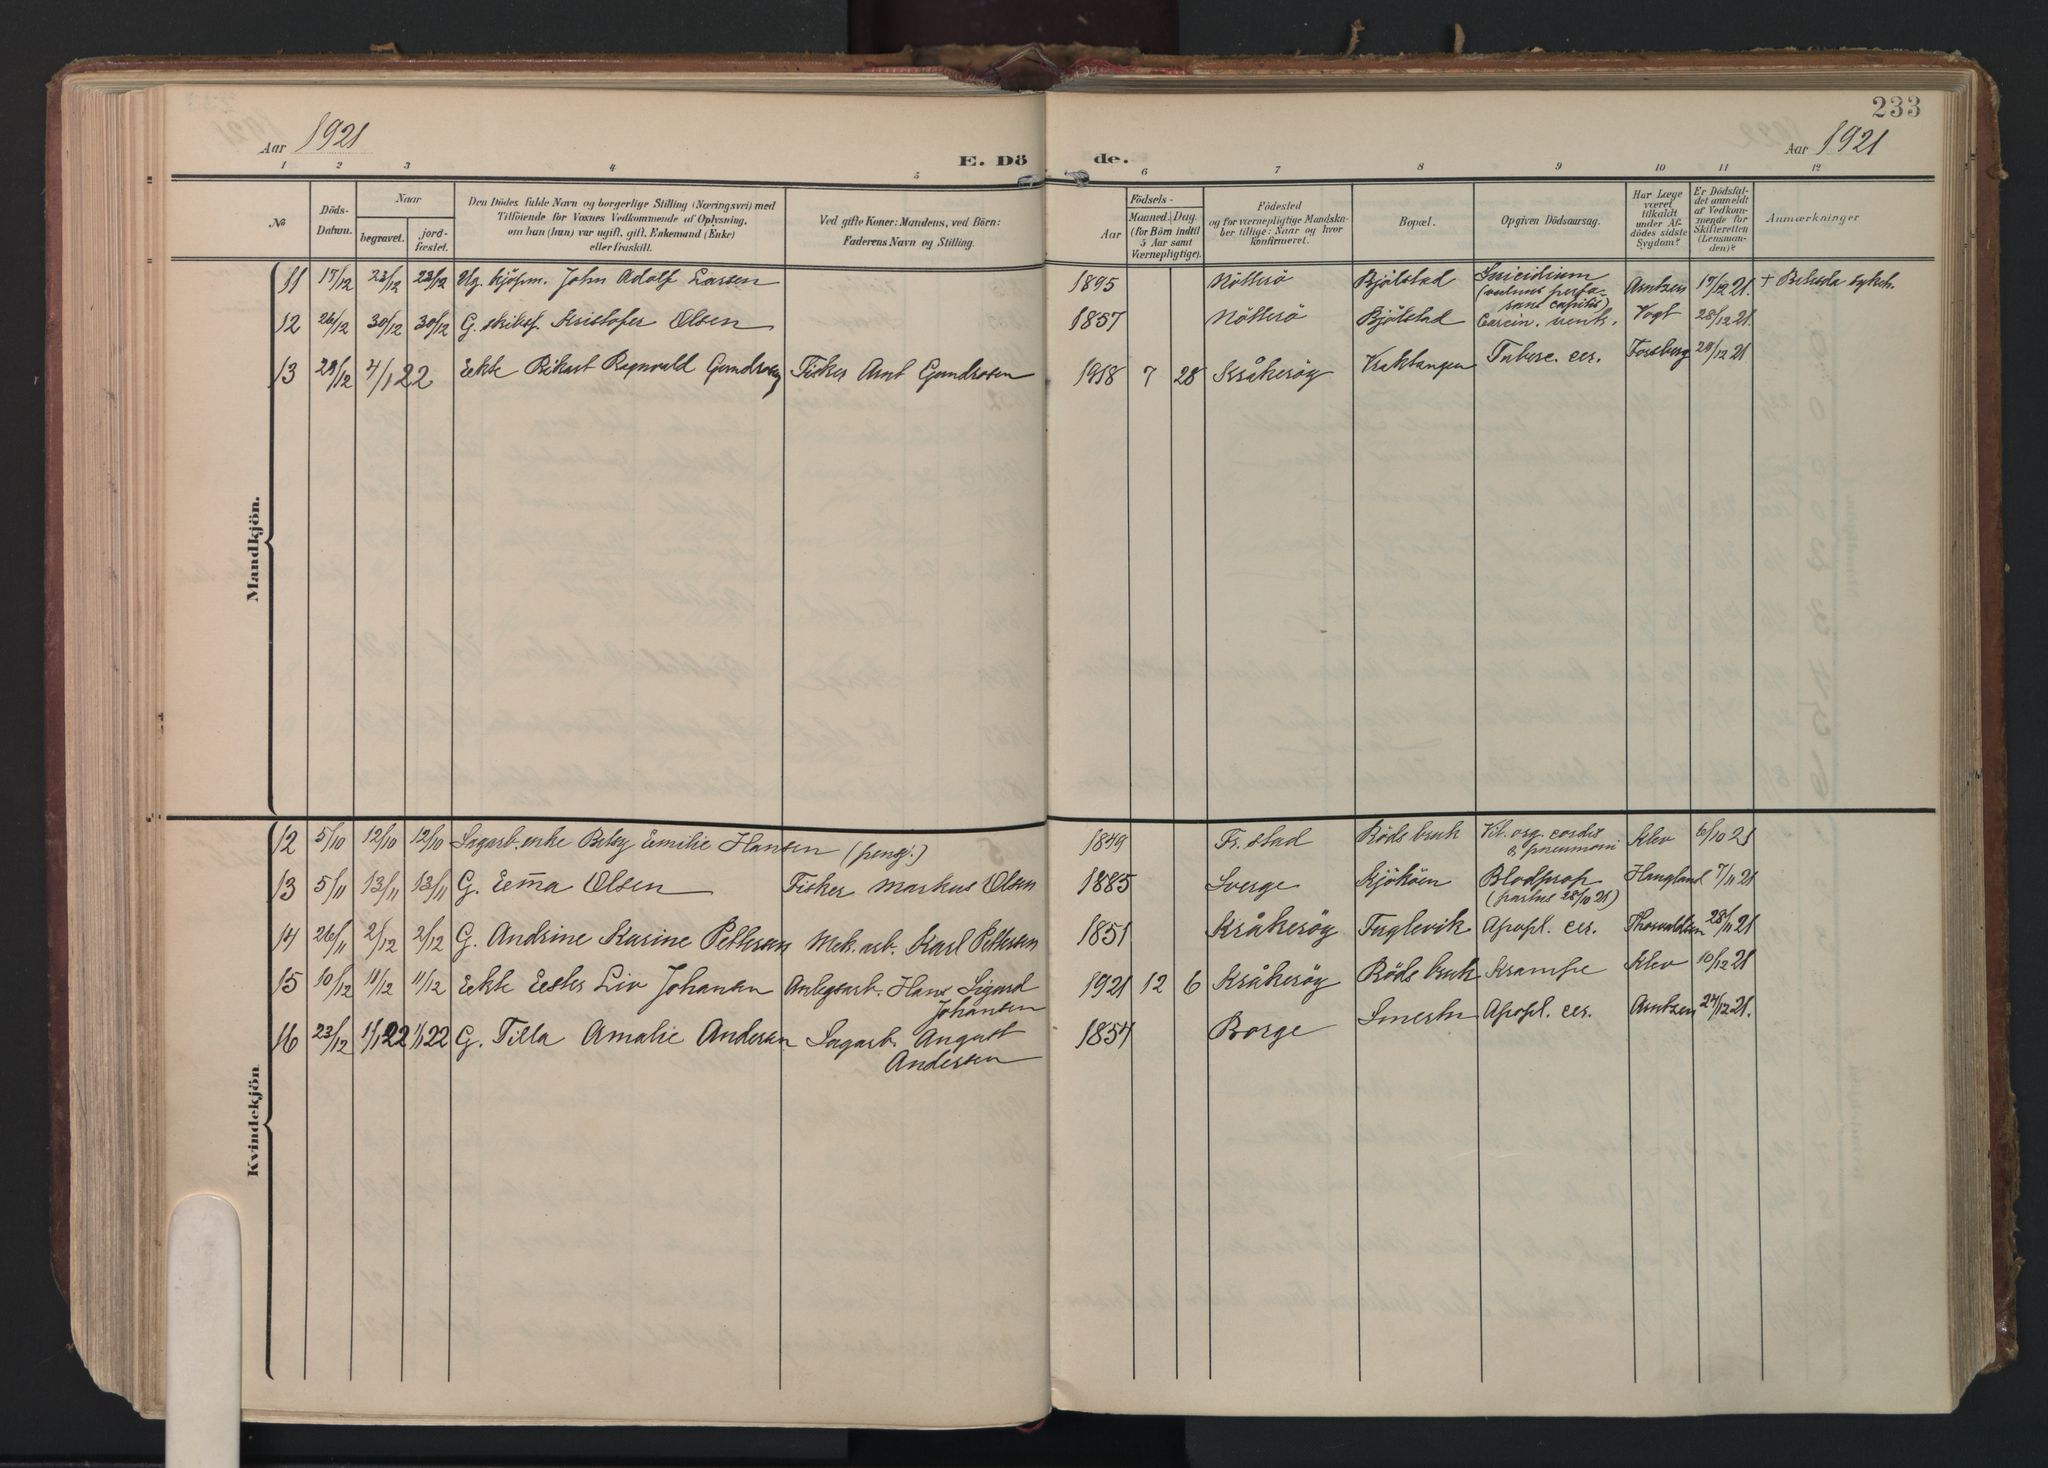 233
Aar 1921
E. Dö
de.
Aar 1921
1 2 3 4 5 6 7 8 9 10 11 12
№
Döds-Datum.
Naar
begravet.
jord-fæstet.
Den Dödes fulde Navn og borgerlige Stilling (Næringsvei) med
Tilföiende for Voxnes Vedkommende af Oplysning,
om han (hun) var ugift, gift, Enkemand (Enke)
eller fraskilt.
Ved gifte Koner: Mandens, ved Börn:
Faderens Navn og Stilling.
Födsels-
Aar
Maaned.
Dag.
(for Börn indtil
5 Aar samt
Værnepligtige).
Födested
og for værnepligtige Mandska-
ber tillige: Naar og hvor
konfirmeret.
Bopæl.
Opgiven Dödsaarsag.
Har Læge
været
tilkaldt
under Af-
dödes sidste
Sygdom?
Er Dödsfal-
det anmeldt
af Vedkom-
mende for
Skifteretten
(Lensman-
den)?
Anmærkninger
Mandkjön.
11 17/12 23/12 23/12 Ug. kjöpm. John Adolf Larsen 1895 Nötterö Bjölstad Suicidium Arntzen 17/12 21. + Betesda sykeh.
(vulnus perfo-
rans capitis)
12 26/12 30/12 30/12 G. skibsf. Kristofer Olsen 1857 Nötterö Bjölstad Carcin. ventr. Vogt 28/12 21.
13 29/12 4/1 22 Ekte Rikart Ragnvald Gundrosen Fisker Arnt Gundrosen 1918 7 28 Kråkeröy Tuberc. cer. Forsberg 29/12 21
Kvindekjön
12 5/10 12/10 12/10 Sagarb. enke Betsy Emilie Hansen (pensj.) 1849 Fr.stad Röds bruk Vit. org. cordis Klev 6/10 21
& pneumoni
13 5/11 13/11 13/11 G. Emma Olsen Fisker Markus Olsen 1885 Sverge Kjököen Blodprop Haugland 7/11 21
(partus 28/10 21)
14 26/11 2/12 2/12 G. Andrine Karine Pettersen Mek. arb. Karl Pettersen 1851 Kråkeröy Fuglevik Apopl. cer. Thorvaldsen 28/11 21
15 10/12 11/12 11/12 Ekte Ester Liv Johansen Anlegsarb. Hans Sigard 1921 12 6 Kråkeröy Röds bruk Krampe Klev 10/12 21
Johansen
16 23/12 1/1 22 1/1 22 G. Tilla Amalie Andersen Sagarb. August 1854 Borge Apopl. cer. Arntzen 24/12 21.
Andersen